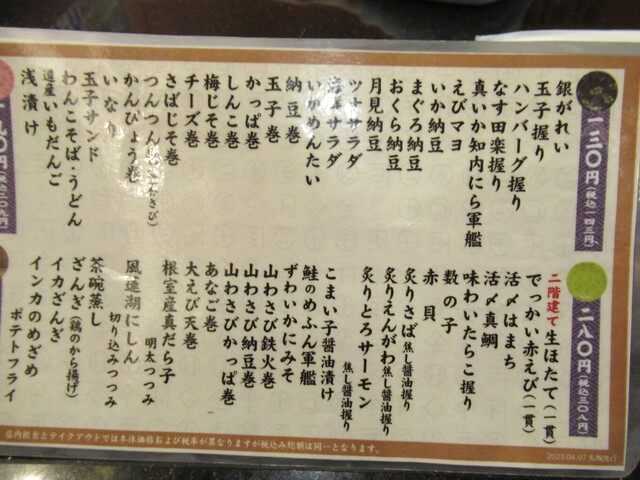 一三〇円(税込一四三円)
銀がれい
玉子握り
ハンバーグ握り
なす田楽握り
真いか知内にら軍艦
えびマヨ
いか納豆
まぐろ納豆
おくら納豆
月見納豆
ツナサラダ
海鮮サラダ
いかめんたい
納豆巻
玉子巻
かっぱ巻
しんこ巻
梅じそ巻
チーズ巻
さばじそ巻
つんつん巻
かんぴょう巻
いなり
玉子サンド
わんこそば・うどん
遺産いもだんご
浅漬け
二八〇円(税込三〇八円)
二階建て生ほたて(一貫)
でっかい赤えび(一貫)
活〆はまち
活〆真鯛
味わいたらこ握り
数の子
赤貝
炙りさば焦し醤油握り
炙りえんがわ焦し醤油握り
炙りとろサーモン
焦し醤油握り
こまい子醤油漬け
鮭のめふん軍艦
ずわいかにみそ
山わさび鉄火巻
山わさび納豆巻
山わさびかっぱ巻
あなご巻
大えび天巻
根室産真だら子
明太つつみ
風連湖にしん
切り込みつつみ
茶碗蒸し
ざんぎ(鶏のから揚げ)
イカざんぎ
インカのめざめ
ポテトフライ
九〇円(税込二〇九円)
店内飲食とテイクアウトでは本体価格および税率が異なりますが税込み総額は同一となります。
2023.04.07